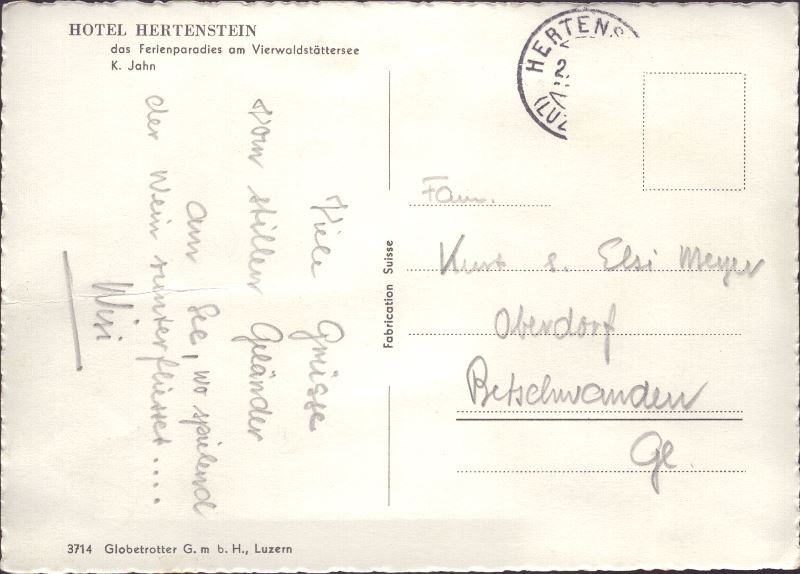 HOTEL HERTENSTEIN
das Ferienparadies am Vierwaldstättersee
K. Jahn
Viele Grüsse
vom stillen Geländer
am See, wo spülend
der Wein runterfliesset.....
Wisi
HERTENS
2
(LUZ
Fabrication Suisse
Fam.
Kurt & Elsi Meyer
Oberdorf
Betschwanden
Gl.
3714 Globetrotter G. m b. H., Luzern